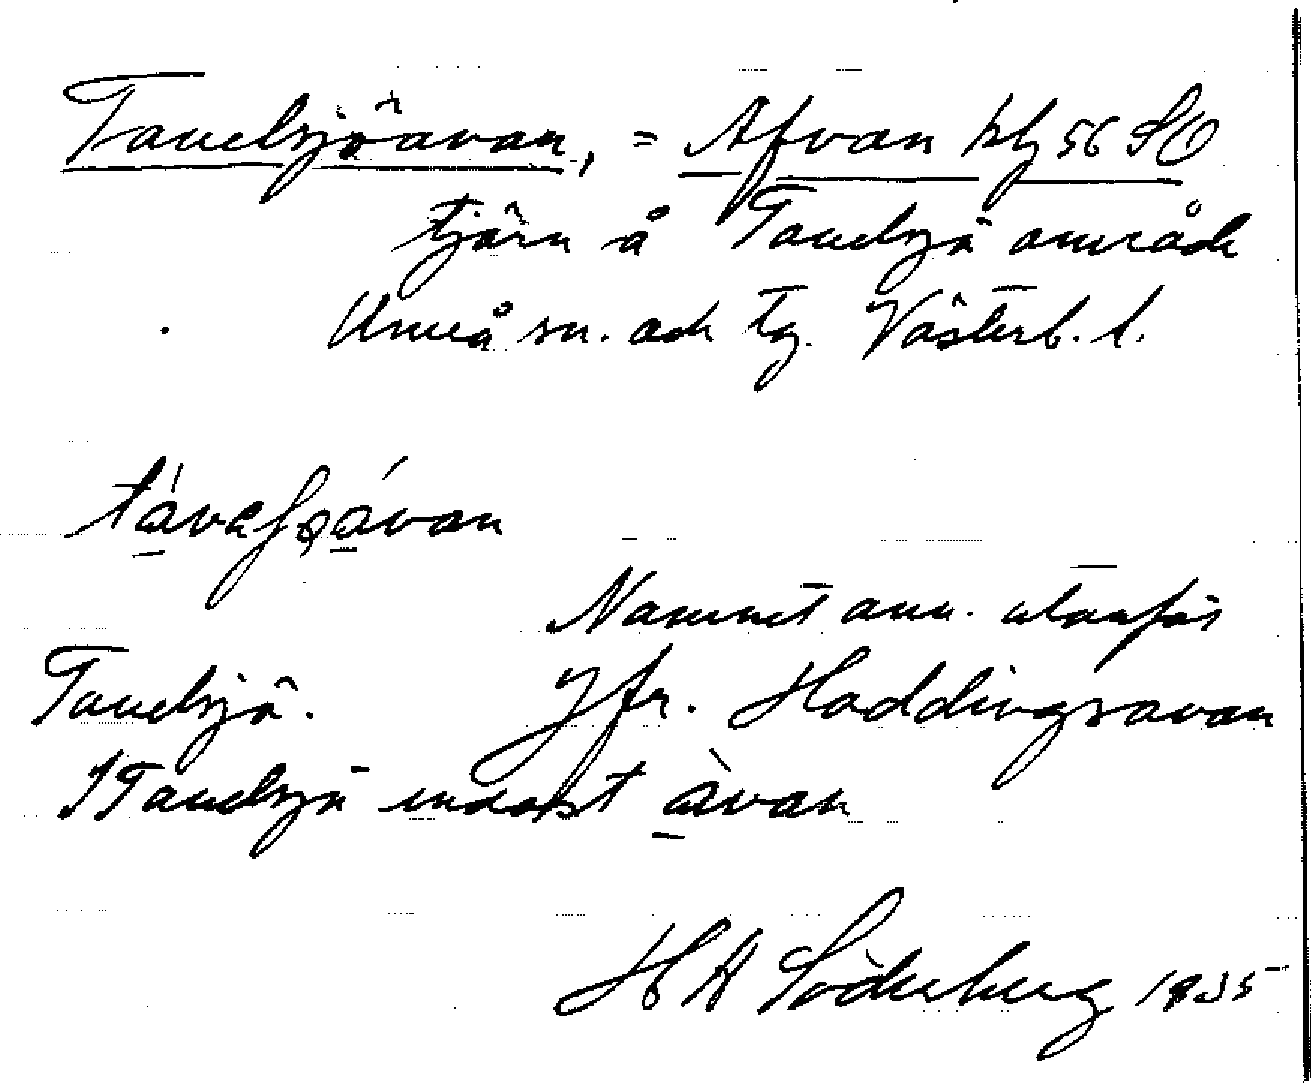 Tavelsjöavan, = Afvan kbl 56 SO
tjärn å Tavelsjö område
Umeå sn. och tg. Västerb. l.
távelʃɷávan
Namnet anv. utanför
Tavelsjö. Jfr. Haddingsavan
I Tavelsjö endast àvan
H A Söderberg 1935